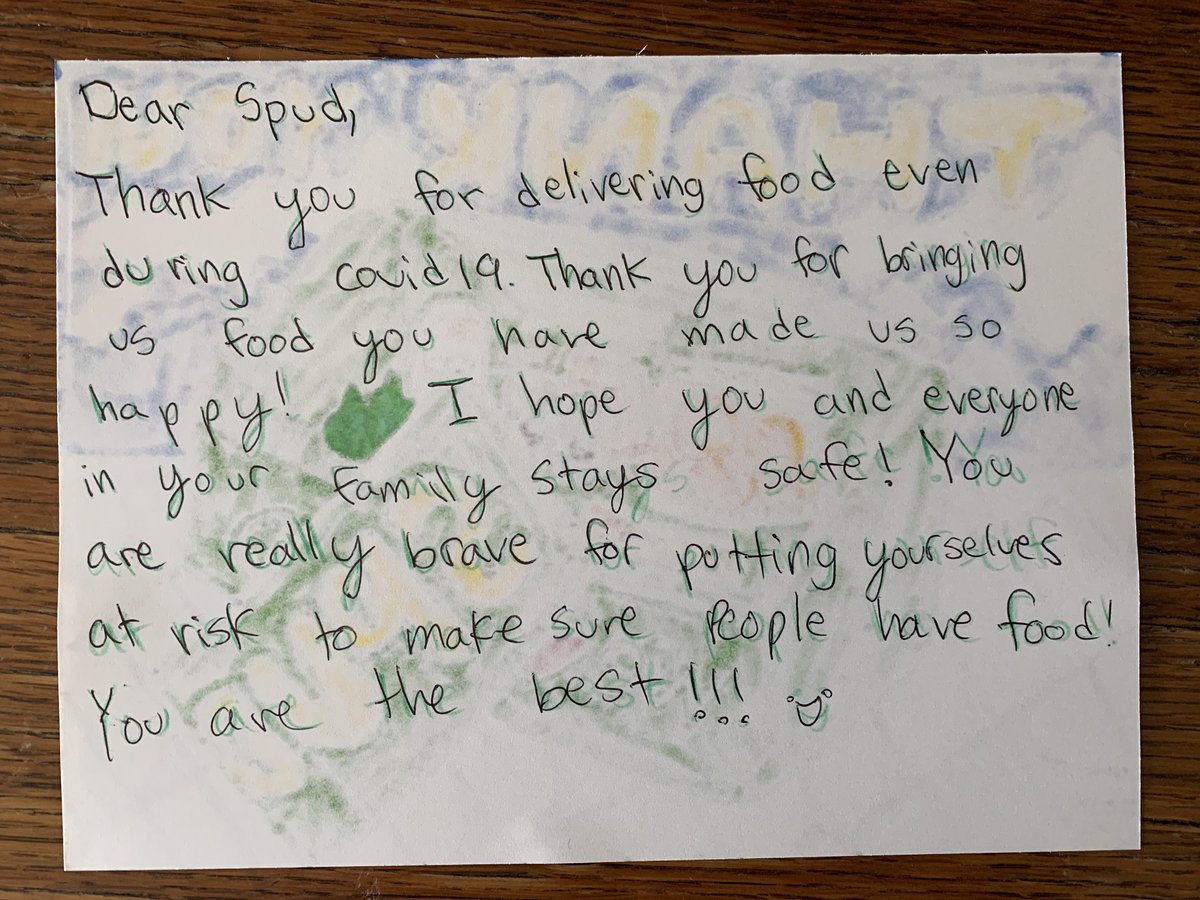 Dear Spud,
Thank you for delivering food even
during covid19. Thank you for bringing
us food you have made us so
happy! I hope you and everyone
in your family stays safe! You
are really brave for putting yourselves
at risk to make sure people have food!
You are the best!!!